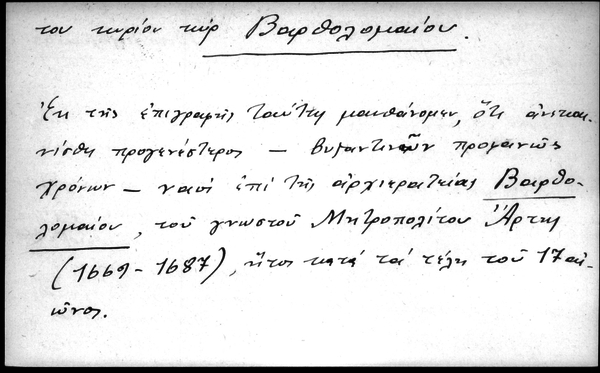 του κυρίου κύρ Βαρθολομαίου.
Ἐκ τῆς ἐπιγραφῆς ταύτης μανθάνομεν, ὅτι ἀνεκαι-
νίσθη προγενέστερος — βυζαντινῶν προφανῶς
χρόνων — ναός ἐπί τῆς ἀρχιερατείας Βαρθο-
λομαίου, τοῦ γνωστοῦ Μητροπολίτου Ἄρτης
(1669-1687), ἤτοι κατά τά τέλη τοῦ 17 αἰ-
ῶνος.